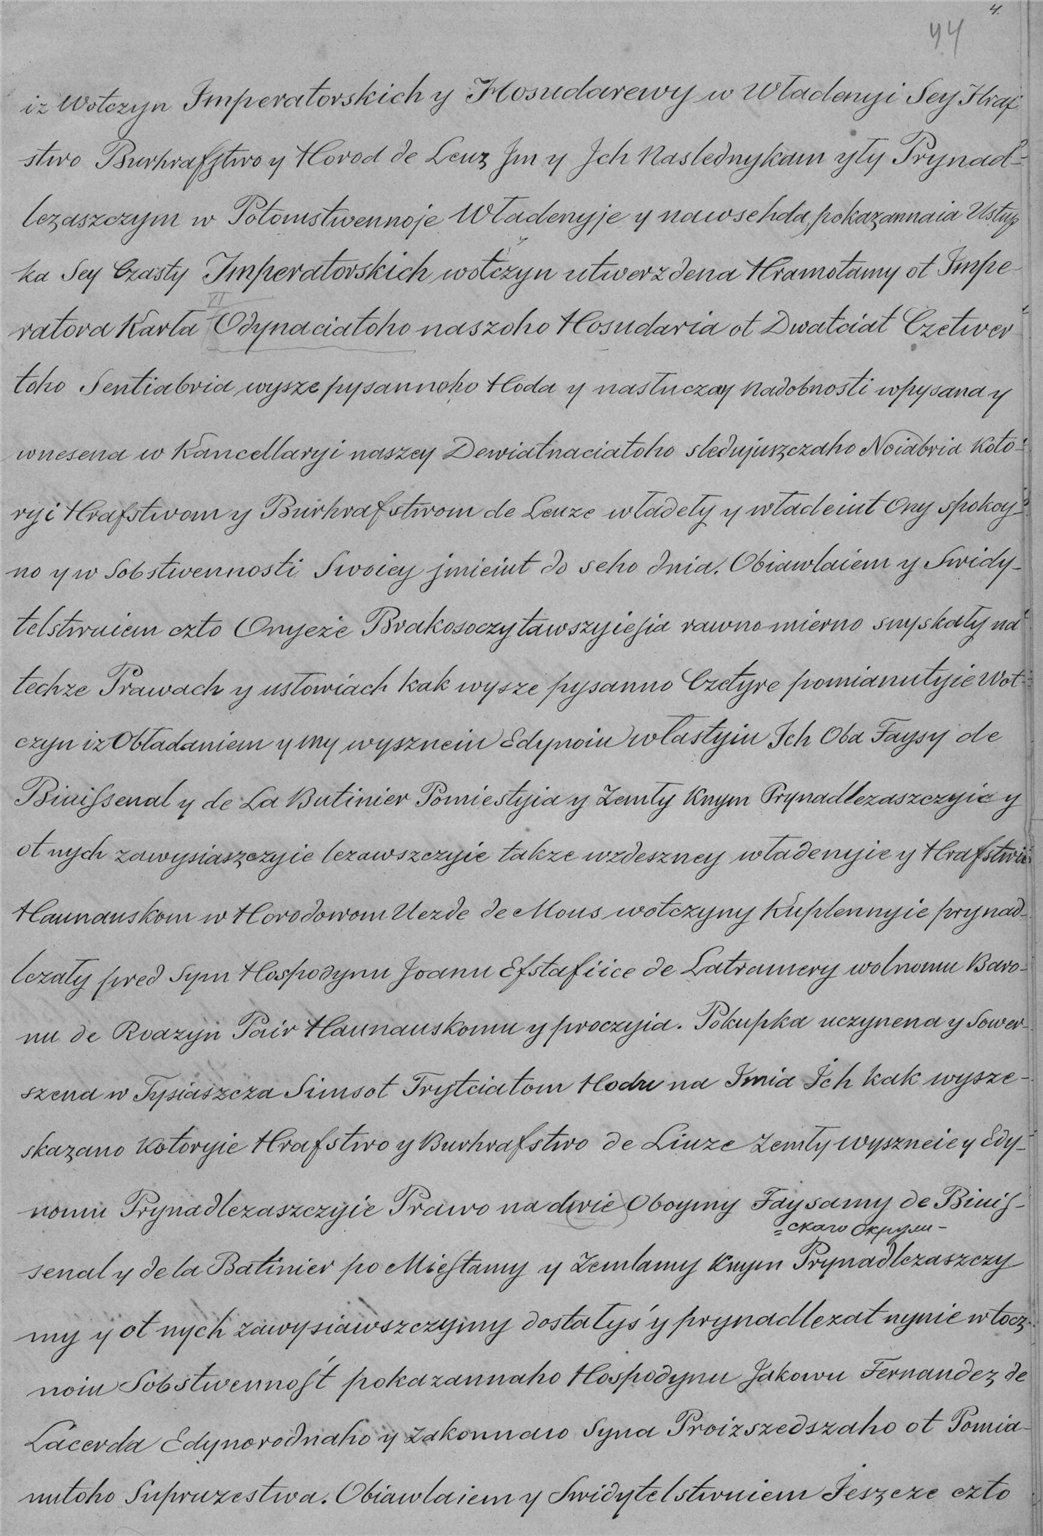 4.
44
iz Wotczyn Imperatorskich y Hosudarewy w Władenyi Sey Hraf
stwo Burhrafstwo y Horod de Leuz Jm y Jch Naslednykam yły Prynad-
lezaszczym w Potomstwennoje Władenyje y nawsehda, pokazannaia Ustup
ka Sey Czasty Imperatorskich wotczyn utwerzdena Hramotamy ot Impe-
ratora Karła Odynaciatoho naszoho Hosudaria ot Dwatciat Czetwer
toho Sentiabria wysze pysannoho Hoda y nasłuczay Nadobnosti wpysana y
wnesena w Kancellaryi naszey Dewiatnaciatoho sledujuszczaho Noiabria Koto-
ryi Hrafstwom y Burhrafstwom de Leuze władeły y władeiut Ony spokoy-
no y w Sobstwennosti Swoiey jmieiut do seho dnia. Obiawlaiem y Swidy-
telstwuiem czto Onyeże Brakosoczytawszyiesia rawnomierno snyskały na
techze Prawach y usłowiach kak wysze pysanno Czetyre pomianutyie Wot-
czyn iz Obładaniem y my wyszneiu Edynoiu własтyiu Jch Oba Faysy de
Biuissenal y de La Butinier Pomiestyia y Zemły Knym Prynadlezaszczyie y
ot nych zawysiaszczyie lezawszczyie takze wzdeszney władenyie y Hrafstwie
Haunauskom w Horodowom Uezde de Mons wotczyny Kuplennyie prynad-
lezały pred Sym Hospodynu Joanu Efstafiice de Latramery wolnomu Baro-
nu de Roazyn Pair Haunauskomu y proczyia. Pokupka uczynena y Sower-
szena w Tysiaszcza Simsot Trytciatom Hodu na Jmia Jch kak wysze-
skazano Kotoryie Hrafstwo y Burhrafstwo de Liuze Zemły Wyszneie y Edy-
nomu Prynadlezaszczyie Prawo na dwie Oboymy Faysamy de Biuis-
=скаго Округи-
senal y de la Batinier po Miestamy y Zemlamy Knym Prynadlezaszczy
my y ot nych zawysiawszczymy dostałyś y prynadlezat nynie w tocz-
noiu Sobstwennośt pokazannaho Hospodynu Jakowu Fernandez de
Lacerda Edynorodnaho y Zakonnaio Syna Proizszedszaho ot Pomia-
nutoho Supruzestwa. Obiawlaiem y Swidytelstwuiem Jeszcze czto